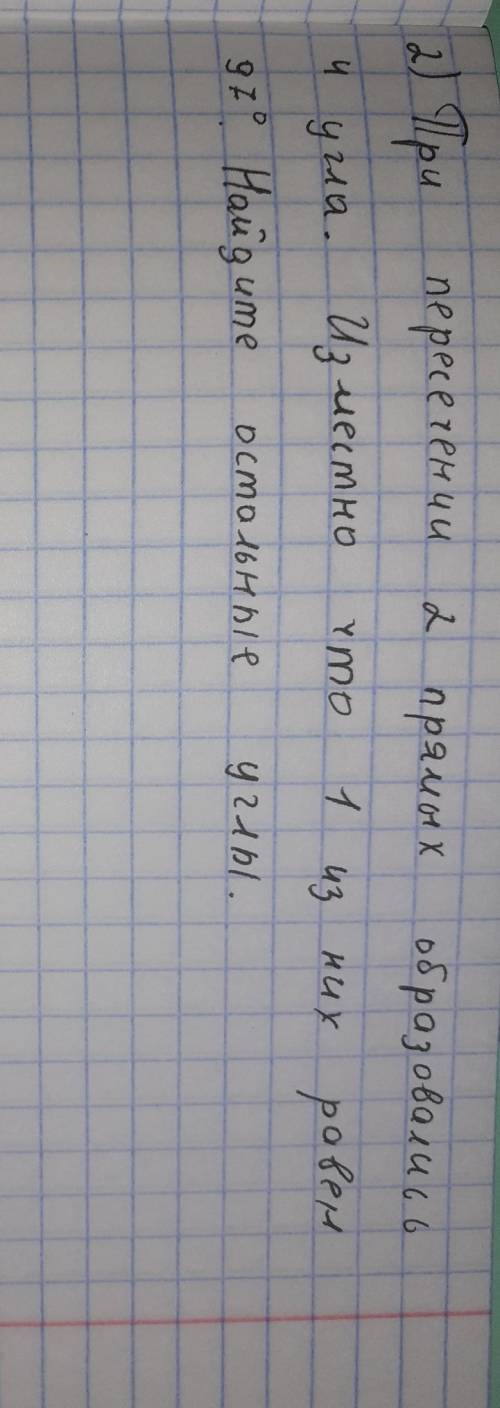 2) При пересечении 2 прямых образовались
4 угла. Изместно что 1 из них равен
97°. Найдите остальные углы.